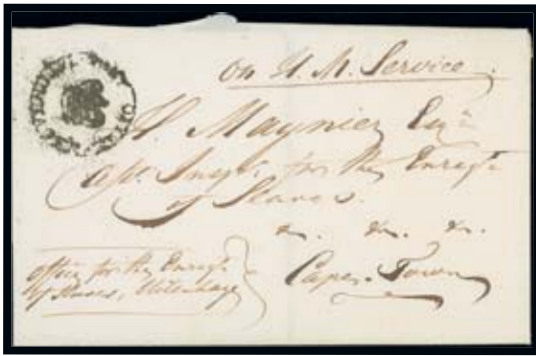 On H. M. Service
H. Maynier Esqre
for the Enregt
of Slaves.
&c. &c. &c.
Cape Town
Office for the Enregt
of Slaves, Uitenhage